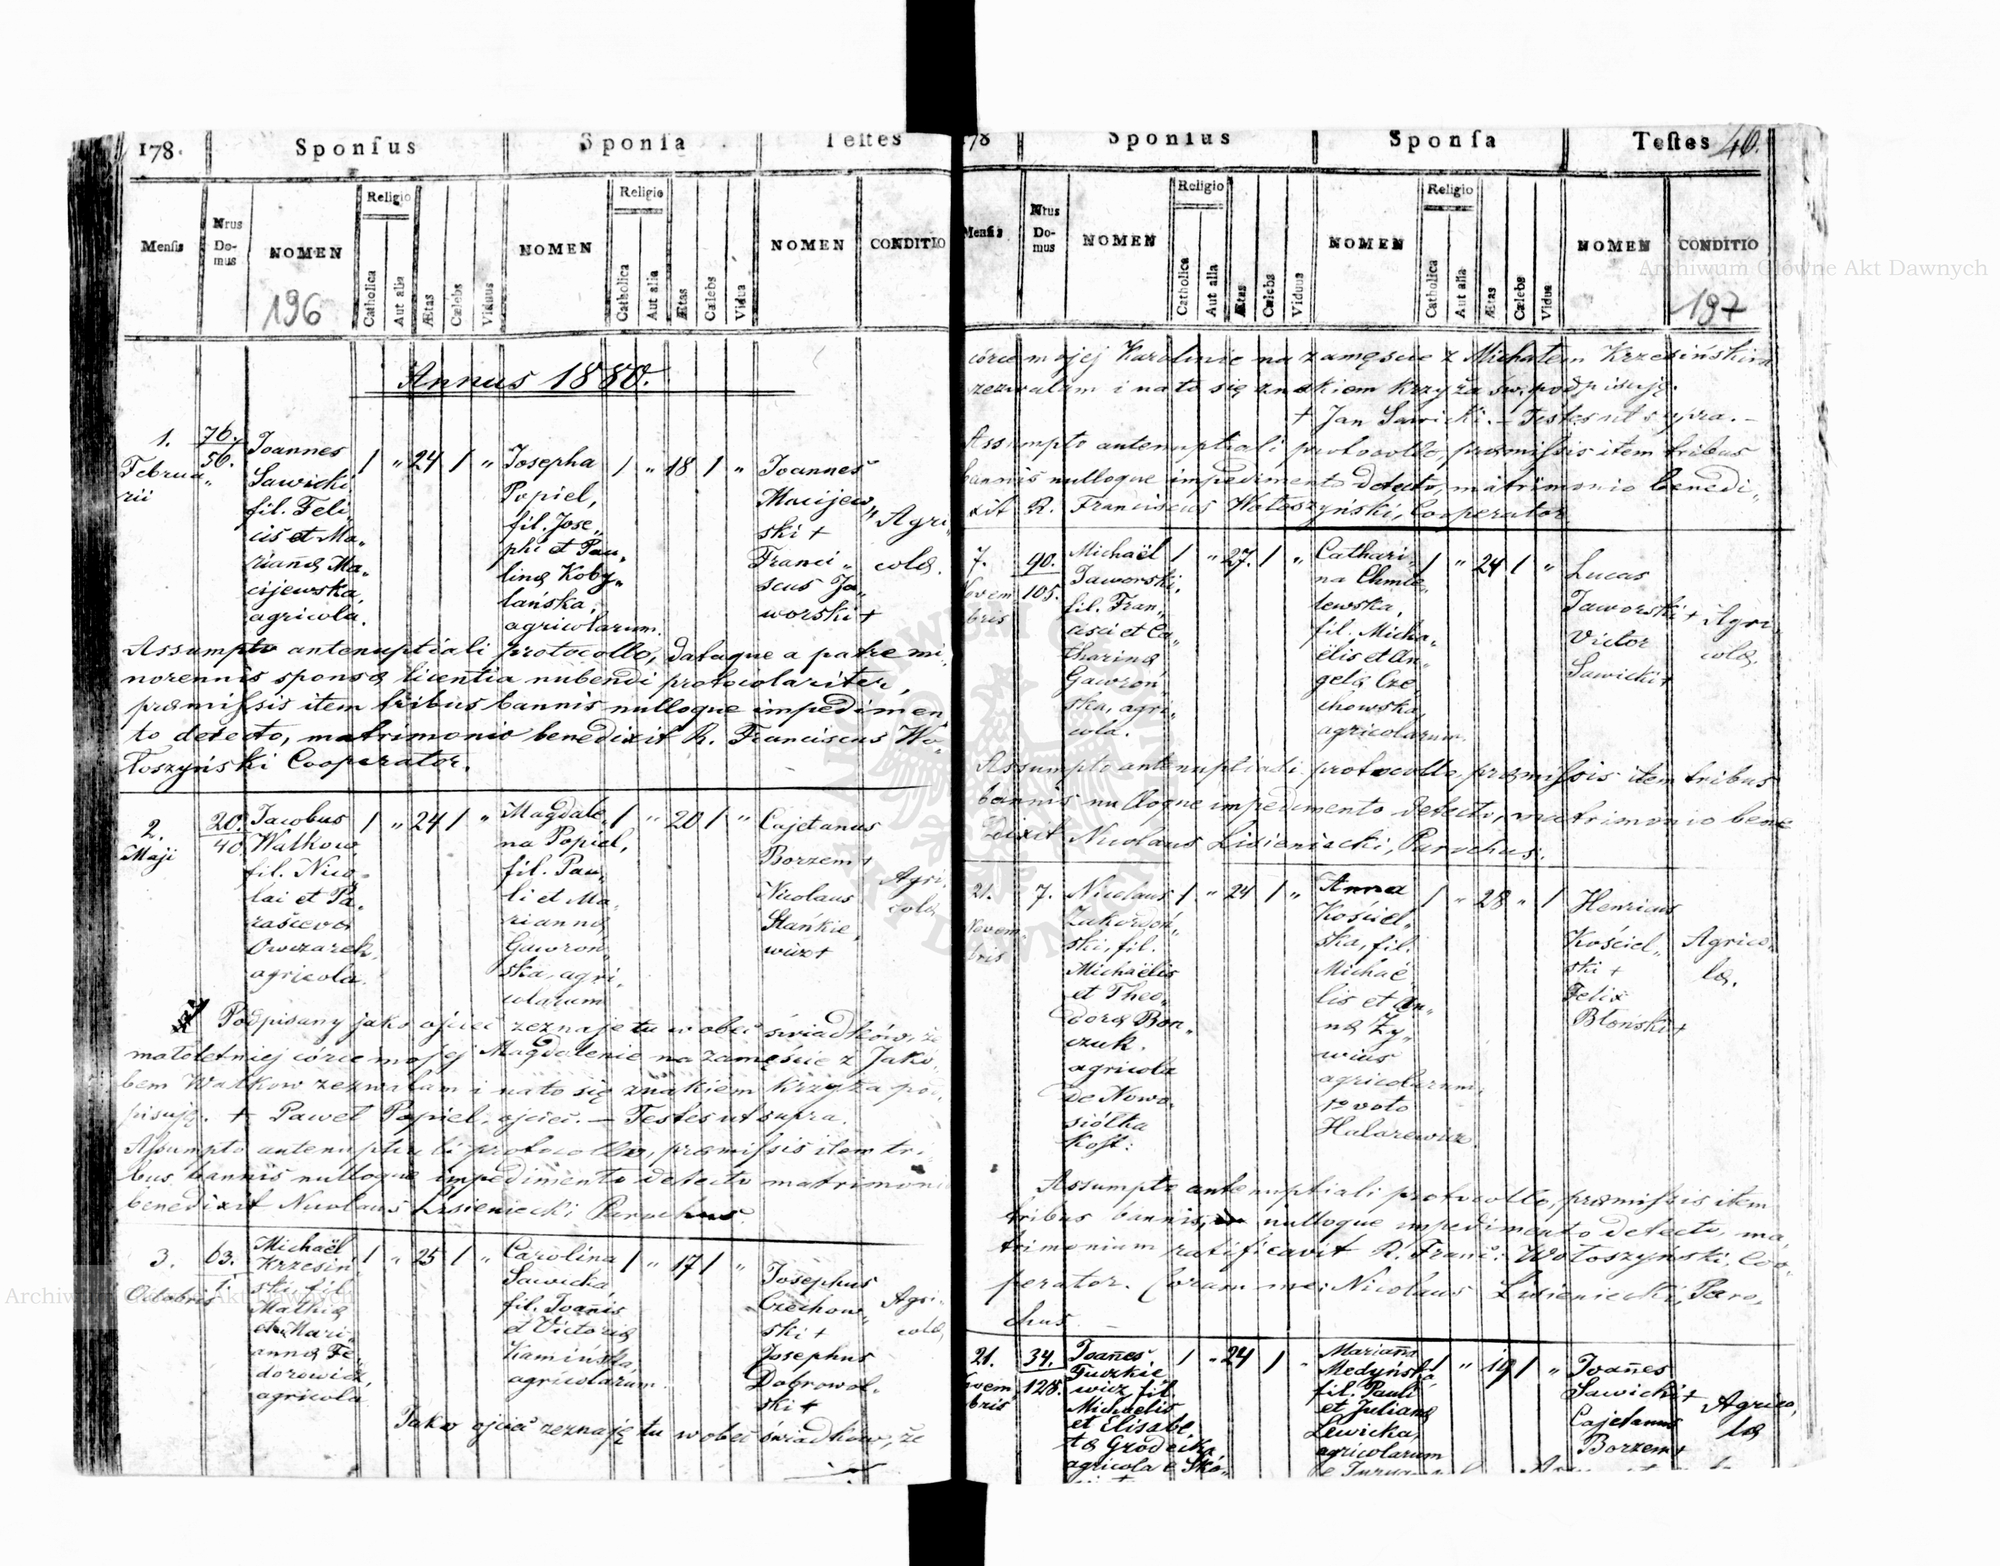 178.
Sponſus
Sponſa
Teſtes
Menſis
Nrus
Do-
mus
NOMEN
Religio
Catholica
Aut alia
Ætas
Cœlebs
Viduus
NOMEN
Religio
Catholica
Aut alia
Ætas
Cœlebs
Vidua
NOMEN
CONDITIO
196
Annus 1880.
1.
Februa„
rii
76.
56.
Joannes
Sawicki
fil. Feli
cis et Ma„
rianæ Ma„
cijewska,
agricola.
/ „ 24 / „
Josepha
Popiel,
fil. Jose„
phi et Pau„
linæ Koby„
lańska,
agricolarum.
/ „ 18 / „
Joannes
Macijew„
ski +
Franci„
scus Ja„
worski +
Agri
colæ.
Assumpto antenuptiali protocollo, dataque a patre mi„
norennis sponsæ licentia nubendi protocolariter,
præmissis item tribus bannis nulloque impedimen
to detecto, matrimonio benedixit R. Franciscus Wo„
łoszyński Cooperator.
2.
Maji
20.
40.
Jacobus
Walkow,
fil. Nico„
lai et Pa„
rascevæ
Owczarek,
agricola.
/ „ 24 / „
Magdale„
na Popiel,
fil. Pau„
li et Ma„
riannæ
Gawron„
ska, agri„
colarum
/ „ 20 / „
Cajetanus
Borzem +
Nicolaus
Stankie„
wicz +
Agri„
colæ
Podpisany jako ojciec zeznaję tu wobec świadków, że
małoletniej córce mojej Magdalenie na zamęście z Jakó„
bem Walkow zezwalam i na to się znakiem krzyża pod„
pisuję. + Paweł Popiel, ojciec. — Testes ut supra.
Assumpto antenuptiali protocollo, præmissis item tri„
bus bannis nulloque impedimento detecto matrimonio
benedixit Nicolaus Lisieniecki Parochus.
3.
Octobris
63.
Michaël
Krzesiń„
ski, fil.
Mathiæ
et Mari„
annæ Fe„
dorowicz,
agricola
/ „ 25 / „
Carolina
Sawicka,
fil. Joañis
et Victoriæ
Kamińska,
agricolarum.
/ „ 17 / „
Josephus
Czechow„
ski +
Josephus
Dobrowol„
ski +
Agri„
colæ
Jako ojciec zeznaję tu wobec świadków, że
178
Sponſus
Sponſa
Teſtes
46.
Menſis
Nrus
Do-
mus
NOMEN
Religio
Catholica
Aut alia
Ætas
Cœlebs
Viduus
NOMEN
Religio
Catholica
Aut alia
Ætas
Cœlebs
Vidua
NOMEN
CONDITIO
197
córce mojej Karolinie na zamęście z Michałem Krzesińskim
zezwalam i na to się znakiem krzyża św. podpisuję.
+ Jan Sawicki. — Testes ut supra. —
Assumpto antenuptiali protocollo, præmissis item tribus
bannis nulloque impedimento detecto, matrimonio benedi„
xit R. Franciscus Wołoszyński, Cooperator.
7.
Novem
bris
90.
105.
Michaël
Jaworski,
fil. Fran„
cisci et Ca„
tharinæ
Gawroń„
ska, agri„
cola.
/ „ 27. / „
Cathari„
na Chmie
lewska,
fil. Micha„
ëlis et An„
gelæ Cze„
chowska,
agricolarum.
/ „ 24 / „
Lucas
Jaworski +
Victor
Sawicki +
Agri
colæ.
Assumpto antenuptiali protocollo, præmissis item tribus
bannis nulloque impedimento detecto, matrimonio bene
dixit Nicolaus Lisieniecki, Parochus.
21.
Novem
bris
7.
Nicolaus
Zakordoń„
ski, fil.
Michaëlis
et Theo„
doræ Bon„
czuk.
agricola
de Nowo„
siółka
Kost:
/ „ 24 / „
Anna
Kościel„
ska, fil.
Michaë„
lis et An„
næ Zy„
wius
agricolarum,
1º voto
Halarewicz.
/ „ 28 „ /
Henricus
Kościel„
ski +
Felix
Błoński +
Agrico„
læ.
Assumpto antenuptiali protocollo, præmissis item
tribus bannis, nulloque impedimento detecto, ma„
trimonium ratificavit R. Franc: Wołoszyński, Coo„
perator. Coram me: Nicolaus Lisieniecki, Paro„
chus.
21.
Novem
bris
34.
128.
Joañes
Tuczkie„
wicz, fil.
Michaelis
et Elisabe„
tæ Grodecka,
agricola e Skó„
/ „ 24 / „
Marianna
Medyńska
fil. Pauli
et Julianæ
Lewicka,
agricolarum
/ „ 19 / „
Joañes
Sawicki +
Cajetanus
Borzem +
Agrico„
læ
Archiwum Główne Akt Dawnych
Archiwum Główne Akt Dawnych
ARCHIWUM GŁÓWNE AKT DAWNYCH